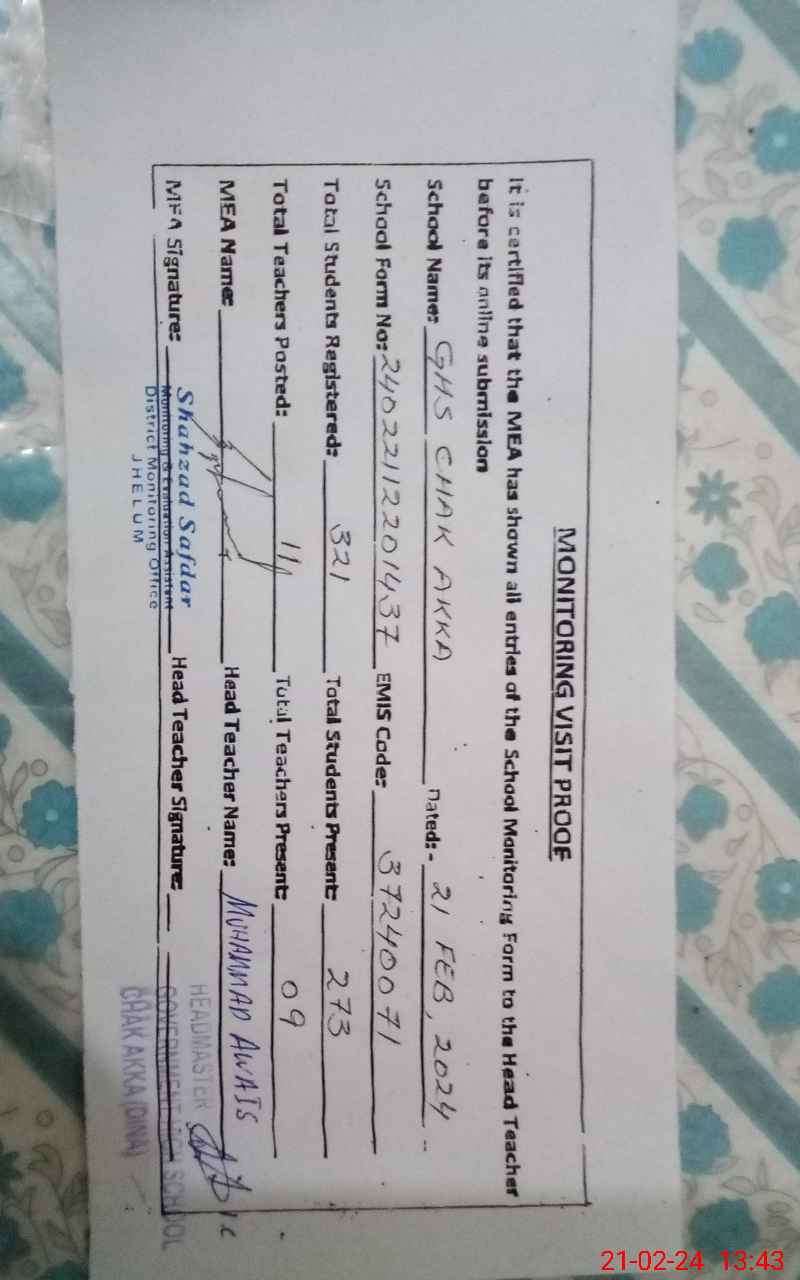 MONITORING VISIT PROOF
It is certified that the MEA has shown all entries of the School Monitoring Form to the Head Teacher
before its online submission
School Name: GHS CHAK AKKA Dated:- 21 FEB, 2024
School Form No: 24022112201437 EMIS Code: 37240071
Total Students Registered: 321 Total Students Present: 273
Total Teachers Posted: 11 Total Teachers Present: 09
MEA Name: Head Teacher Name: MUHAMMAD AWAIS
MEA Signature: Head Teacher Signature:
Shahzad Safdar
Monitoring & Evaluation Assistant
District Monitoring Office
JHELUM
HEADMASTER
GOVERNMENT HIGH SCHOOL
CHAK AKKA (DINA)
21-02-24 13:43